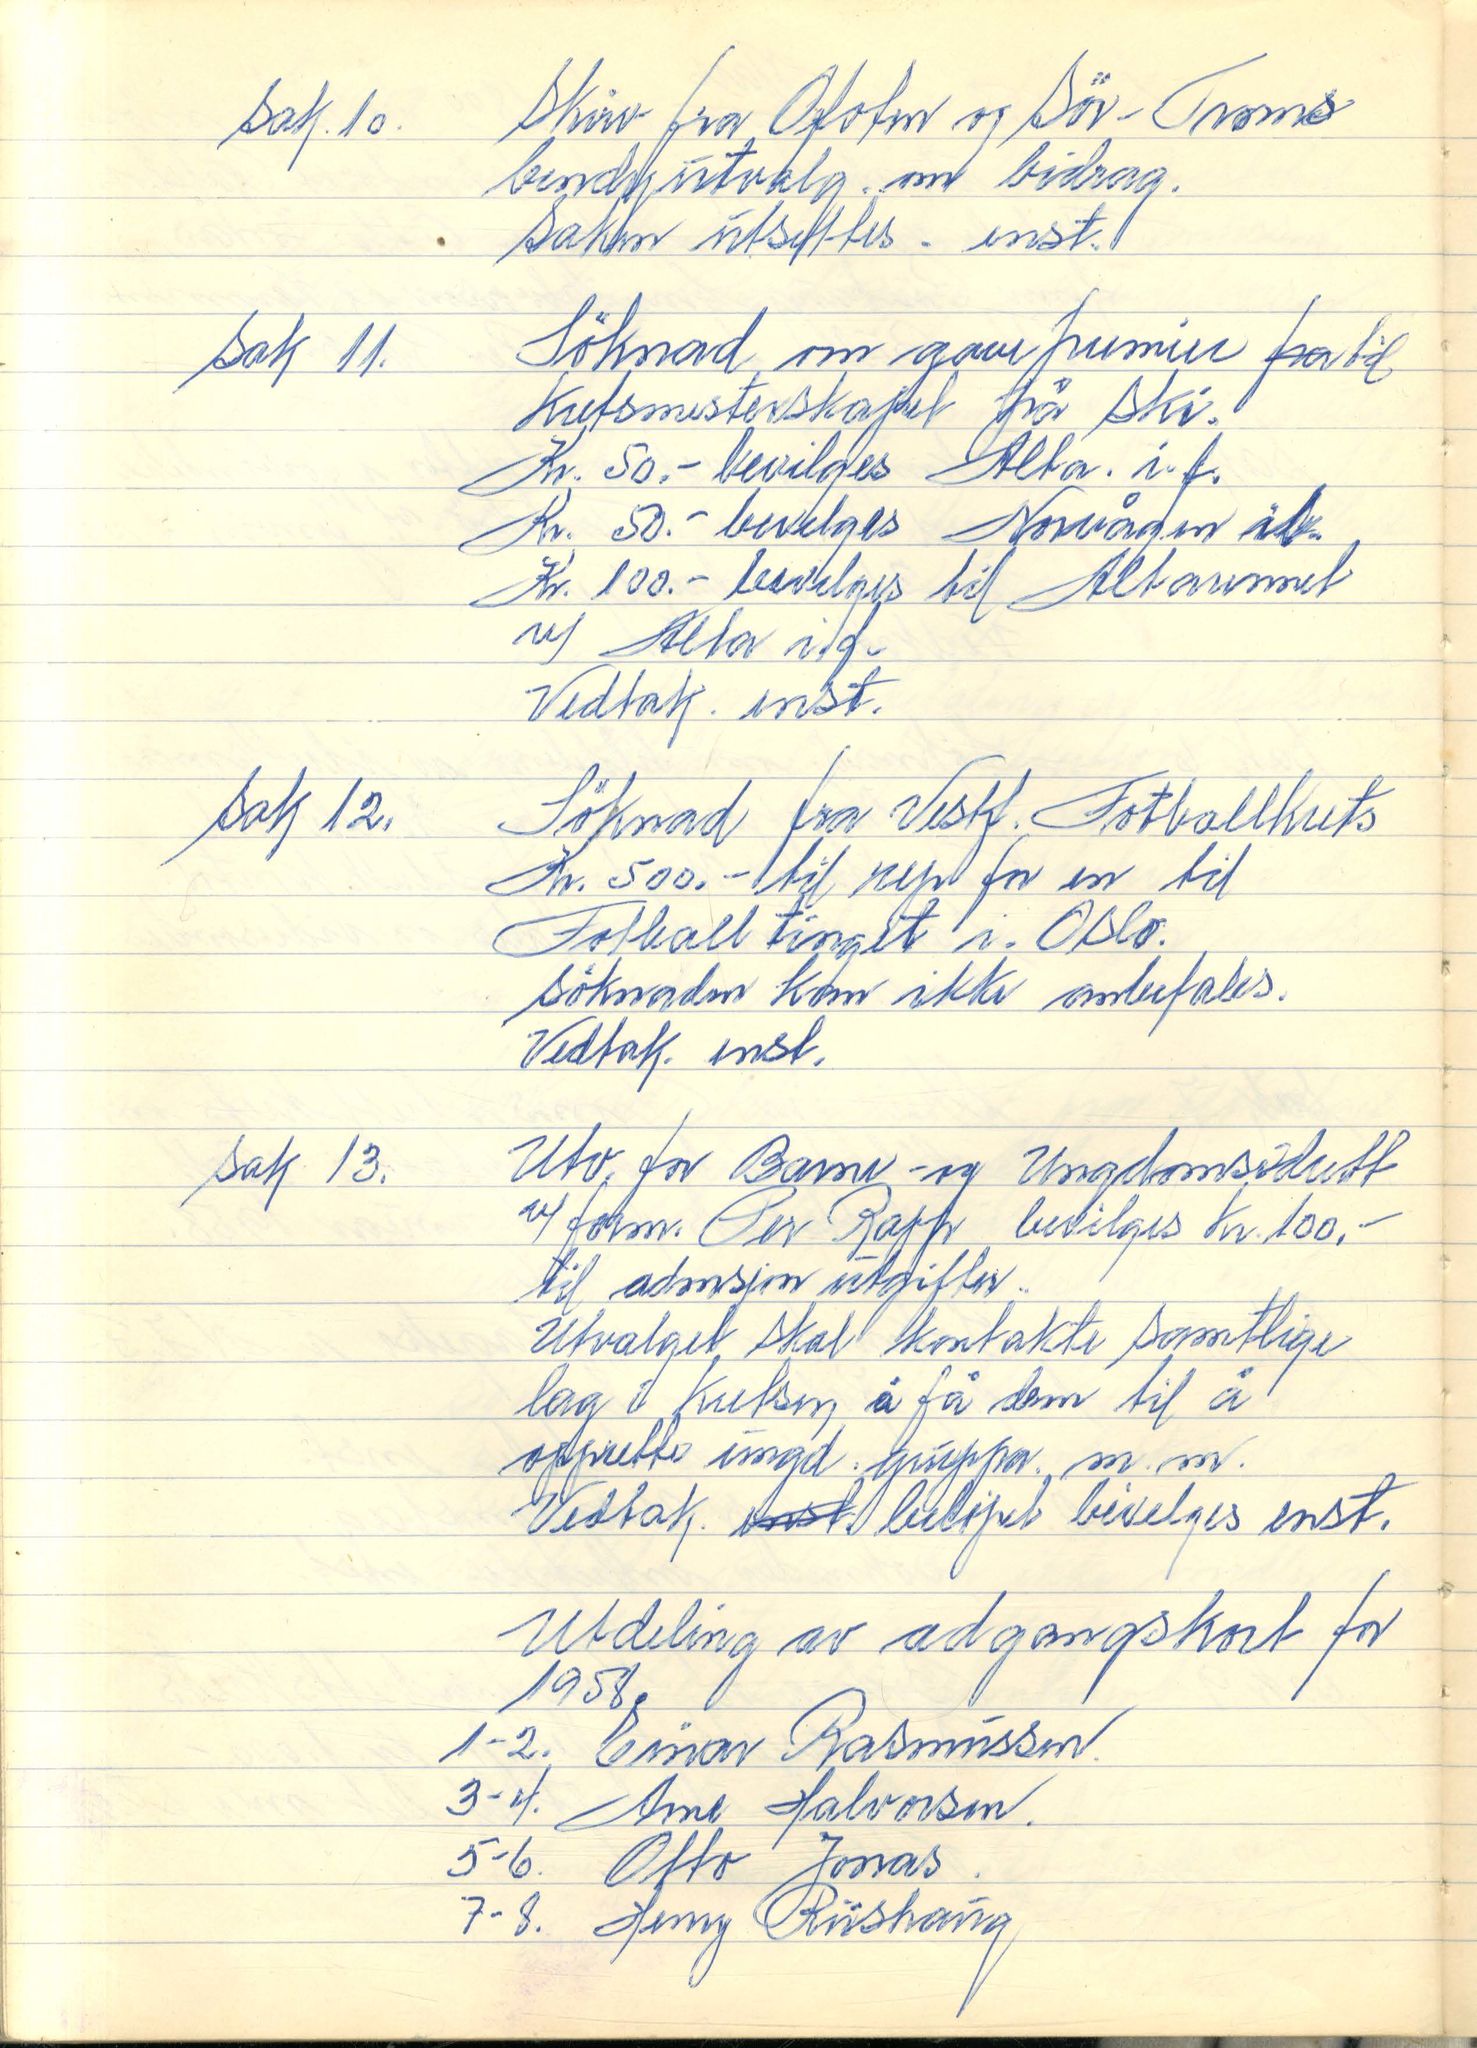 Sak. 10. Skriv fra Ofoten og Sör-Troms
bandyutvalg. om bidrag.
Saken utsettes. enst.
Sak 11. Söknad om gavepremier fra til
Kretsmesterskapet på ski.
Kr. 50.- bevilges Alta. i.f.
Kr. 50.- bevilges Norvågen
Kr. 100.- bevilges til Altarennet
v/ Alta i.f.
Vedtak. enst.
Sak 12. Söknad fra Vestf. Fotballkrets
Kr. 500.- til rep for en til
Fotball tinget i. Oslo.
Söknaden kan ikke anbefales.
Vedtak. enst.
Sak 13. Utv. for Barne- og Ungdomsidrett
v/ form. Per Rapp bevilges kr. 100,-
til admsjon utgifter.
Utvalget skal kontakte samtlige
lag i Kretsen, å få dem til å
opprette ungd. gruppa. m.m.
Vedtak. enst. belöpet bevilges enst.
Utdeling av adgangskort for
1958.
1-2. Einar Rasmussen.
3-4. Arne Halvorsen.
5-6. Otto Jonas.
7-8. Henry Riishaug